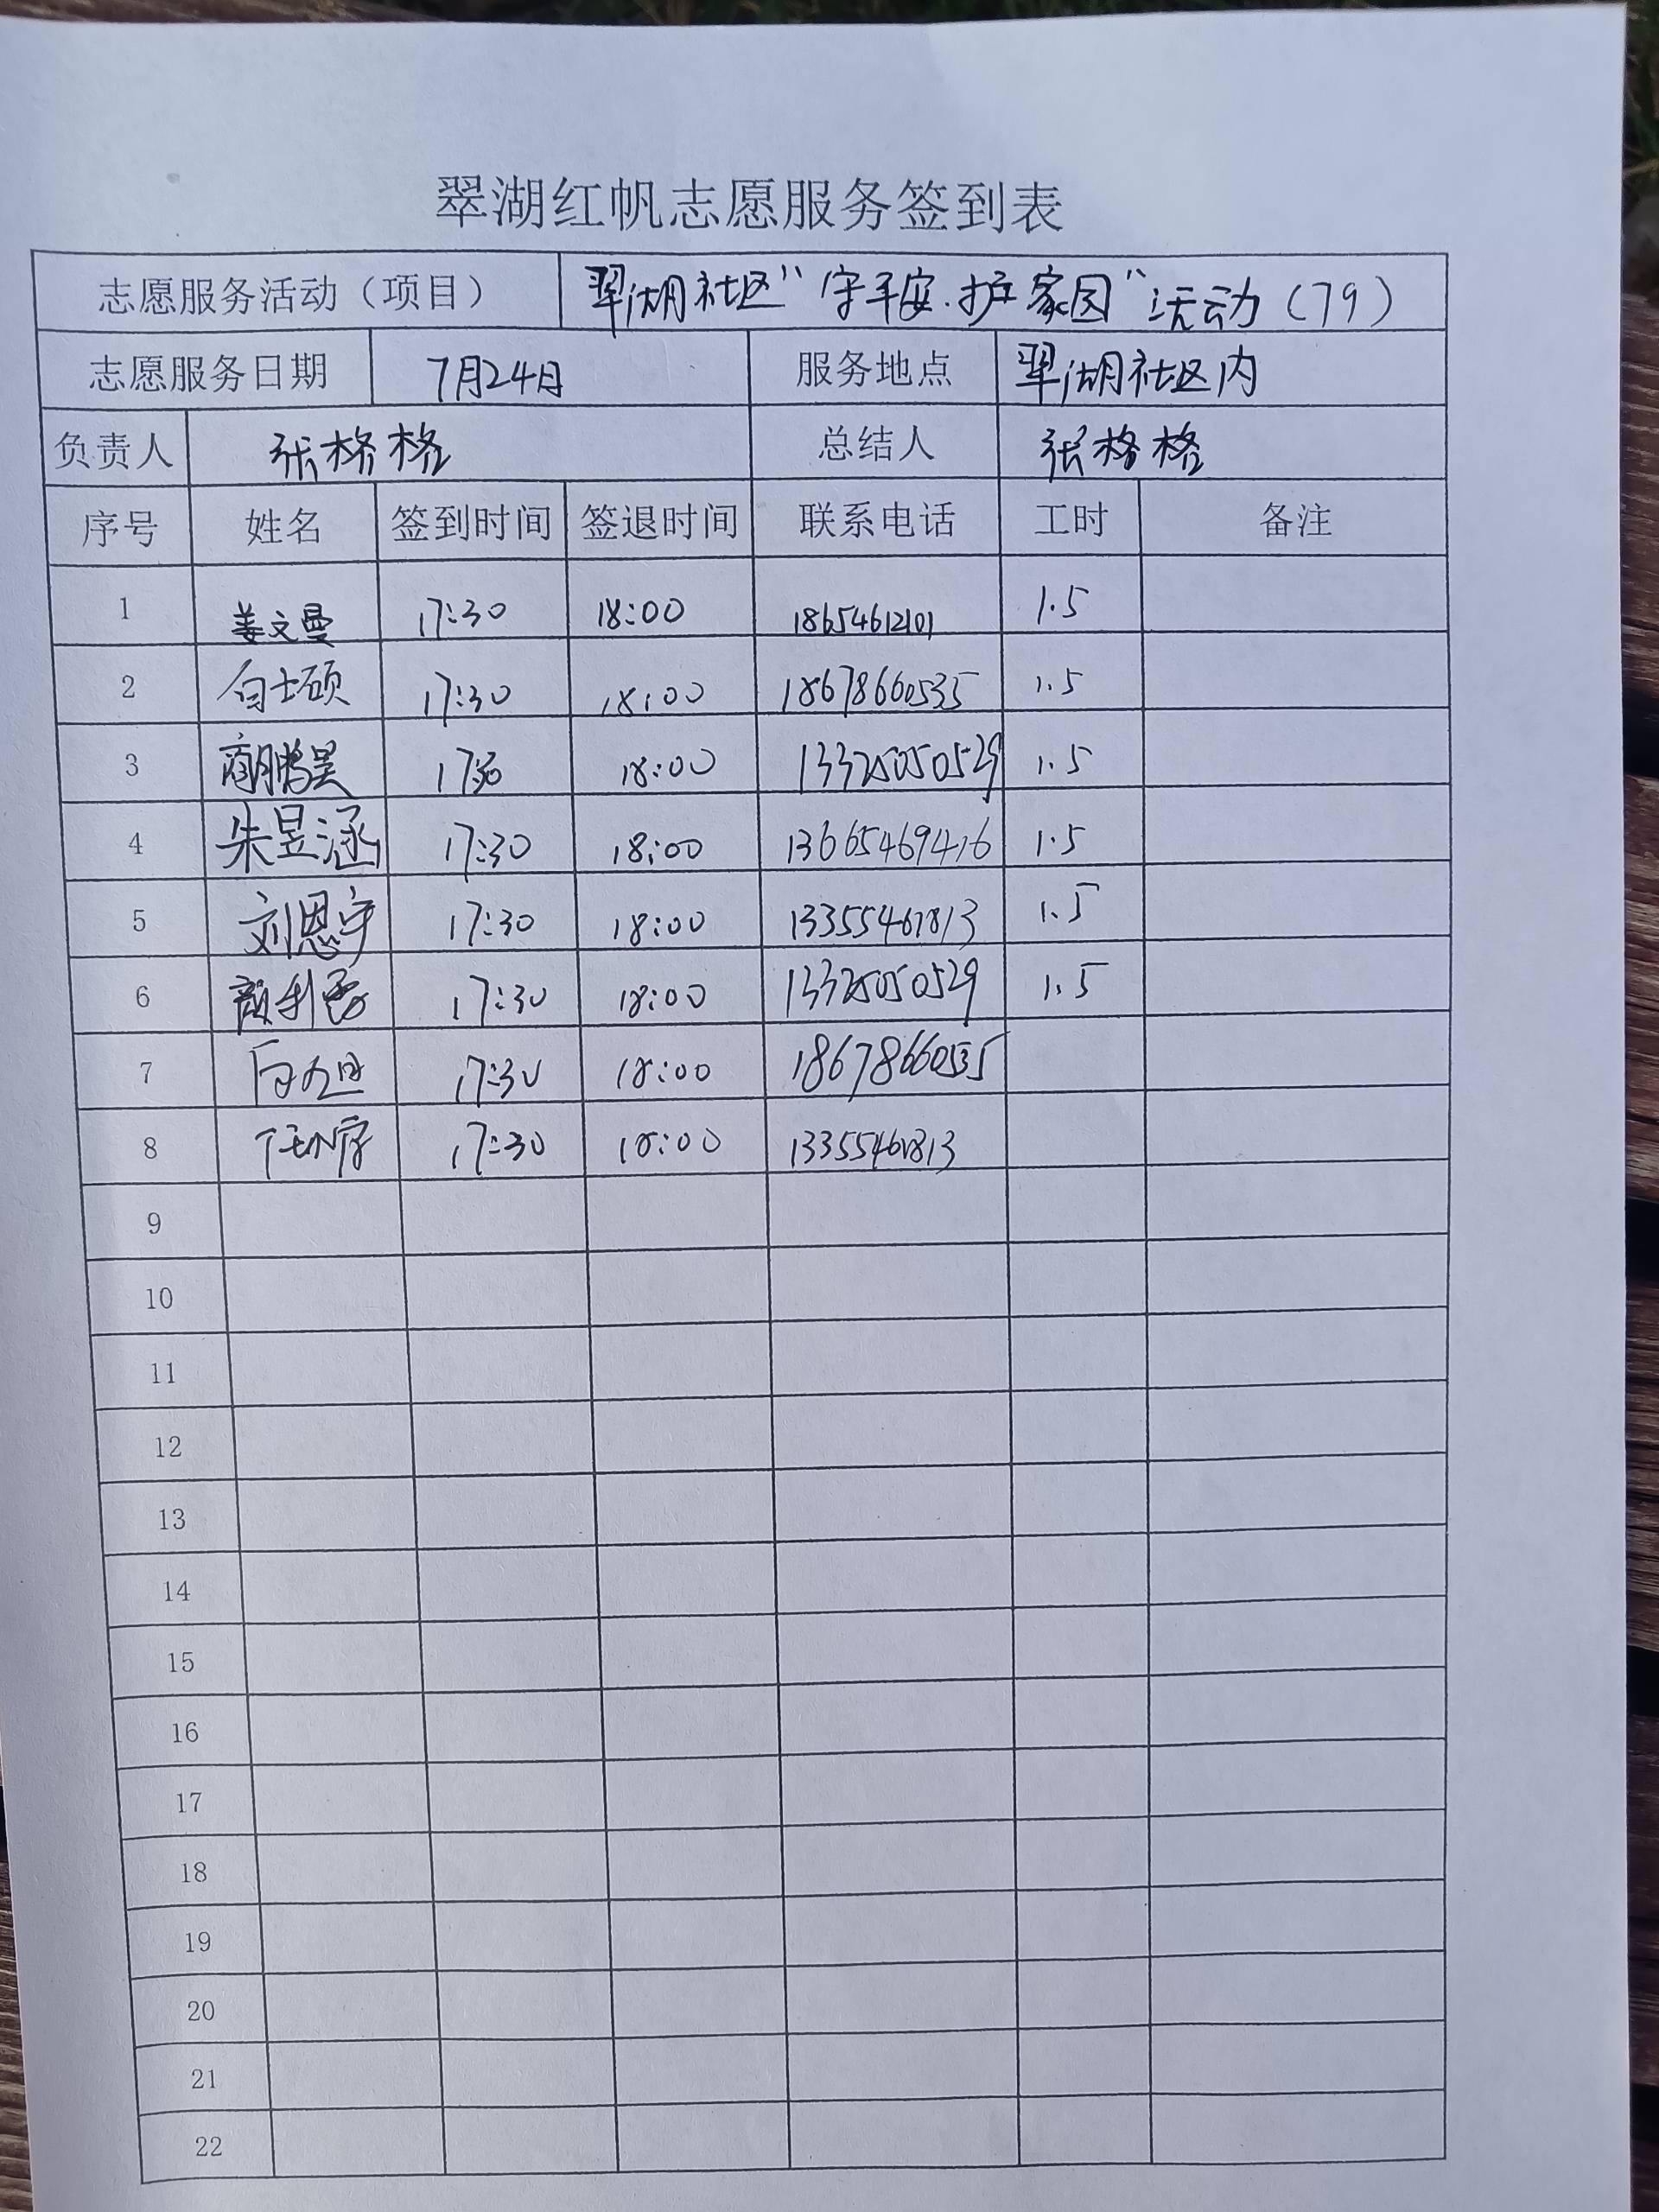 翠湖红帆志愿服务签到表
志愿服务活动（项目） 翠湖社区“守平安·护家园”活动（79）
志愿服务日期 7月24日 服务地点 翠湖社区内
负责人 张格格 总结人 张格格
序号 姓名 签到时间 签退时间 联系电话 工时 备注
1 姜文曼 17:30 18:00 18654612101 1.5
2 白士硕 17:30 18:00 18678660535 1.5
3 商鹏昊 17:30 18:00 13325050529 1.5
4 朱昱涵 17:30 18:00 13665469416 1.5
5 刘恩宇 17:30 18:00 13355461813 1.5
6 颜利 17:30 18:00 13325050529 1.5
7 17:30 18:00 18678660535
8 17:30 18:00
9
10
11
12
13
14
15
16
17
18
19
20
21
22